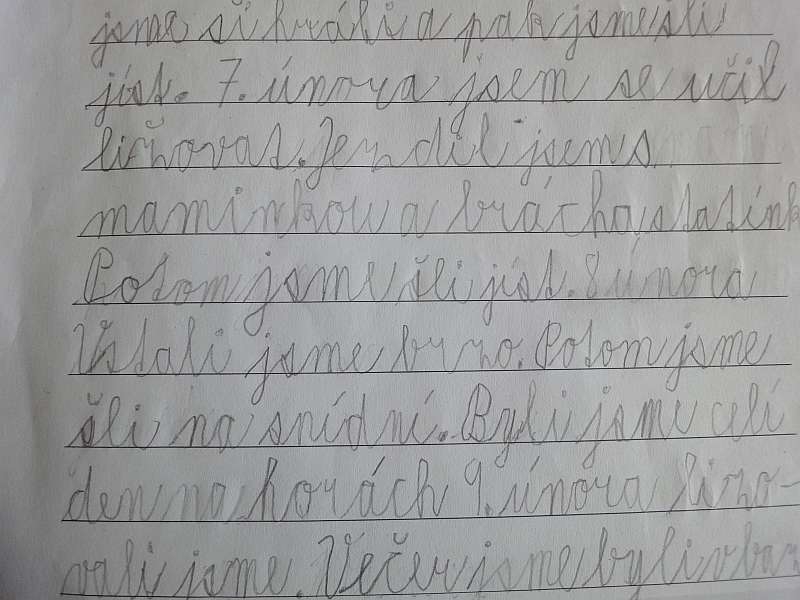 jsme si hráli a pak jsme šli
jíst. 7. února jsem se učil
ližovat. Jezdil jsem s
maminkou a brácha s tatínk
Potom jsme šli jíst. 8 února
Vstali jsme brzo. Potom jsme
šli na snídní. Byli jsme celí
den na horách 9. února lizo-
vali jsme. Večer jsme byli v baz